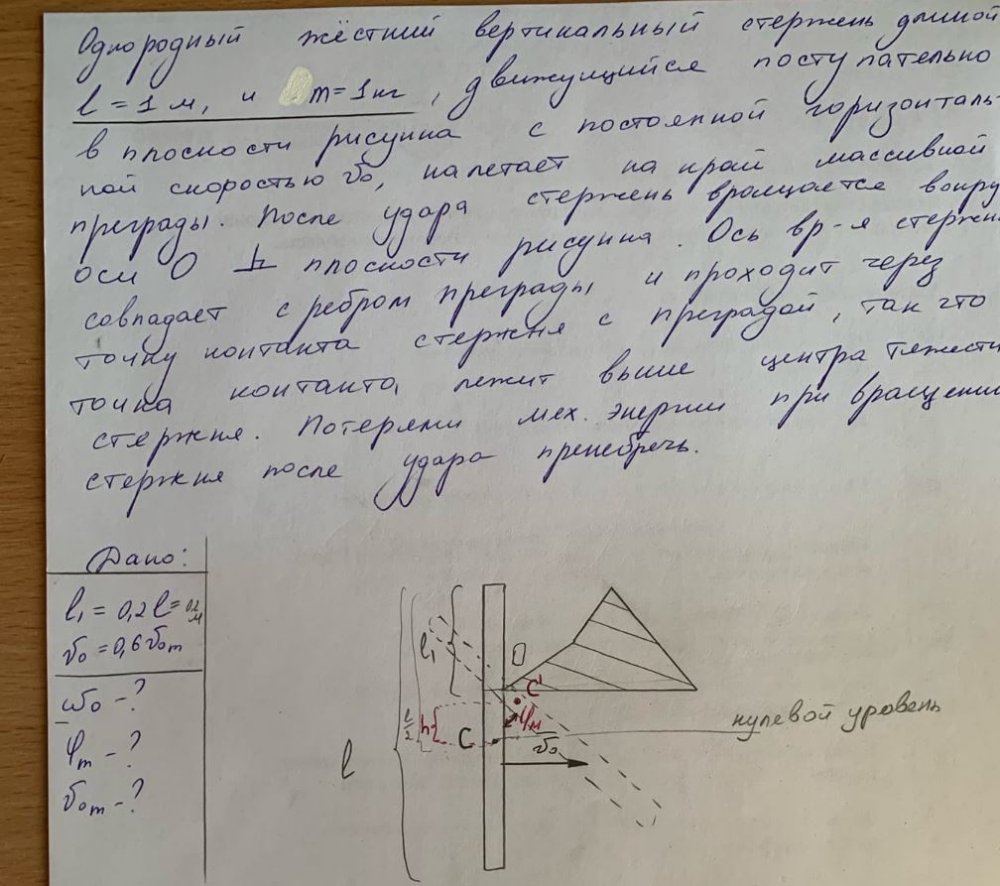 Однородный жёсткий вертикальный стержень длиной
l = 1 м, и m = 1 кг, движущийся поступательно
в плоскости рисунка с постоянной горизонталь-
ной скоростью v₀, налетает на край массивной
преграды. После удара стержень вращается вокруг
оси О ⊥ плоскости рисунка. Ось вр-я стержня
совпадает с ребром преграды и проходит через
точку контакта стержня с преградой, так что
точка контакта лежит выше центра тяжести
стержня. Потерями мех. энергии при вращении
стержня после удара пренебречь.
Дано:
l₁ = 0,2 l = 0,2 м
v₀ = 0,6 v₀m
ω₀ - ?
φm - ?
v₀m - ?
l
l/2
h
l₁
O
C'
φм
C
v₀
нулевой уровень